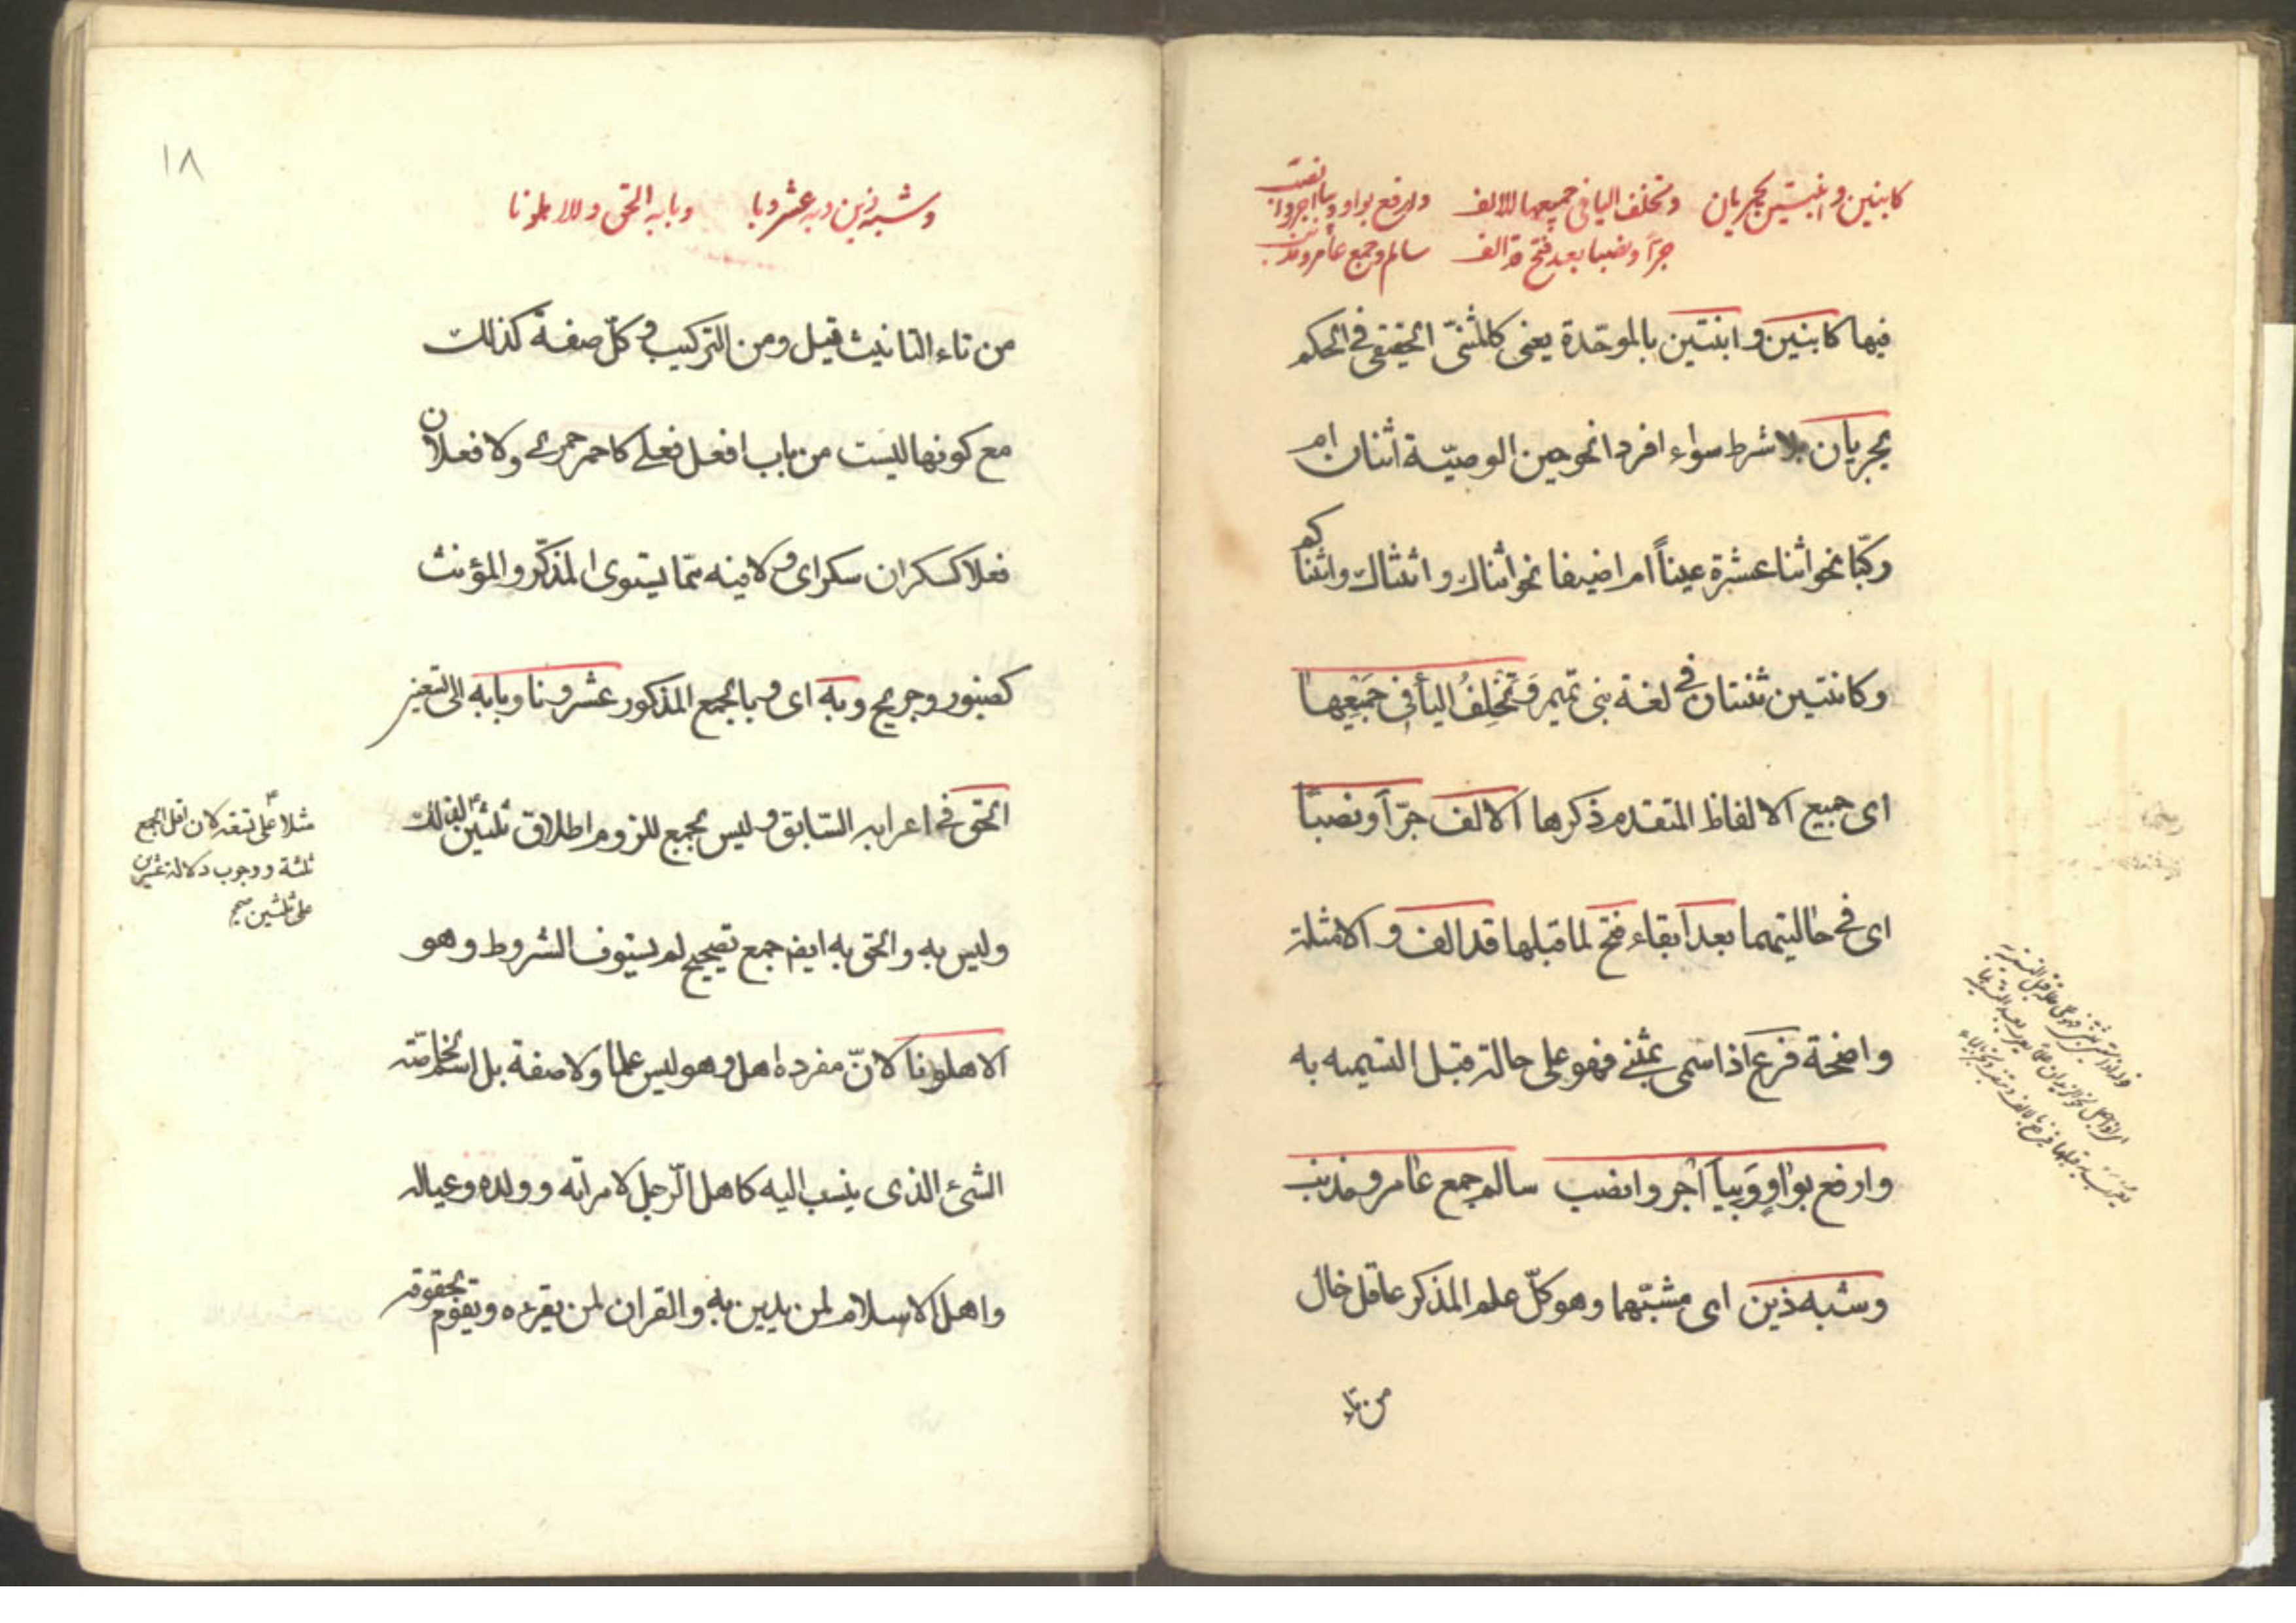 كابنين وابنتين يجريان وتخلف اليا في جميعها الالف وارفع بواو وبيا اجرر وانصب
جرّا ونصبا بعد فتح قد الف سالم جمع عامر ومذنب
فيها كابنين و ابنتين بالموحّدة يعنى كالمثنّى الحقيقى فى الحكم
يجريان بلا شرط سواء افردا نحو حين الوصيّة اثنان ام
ركّبا نحو اثنا عشرة عيناً ام اضيفا نحو اثناك و اثنتاك واثناكم
وكاثنتين ثنتان فى لغة بنى تميم وَتَخْلِفُ اليا فى جَمِيْعِهَا
اى جميع الالفاظ المتقدم ذكرها الالف جرّاً ونصبًا
اى فى حاليتهما بعد ابقاء فتح لما قبلها قد الف و الامثلة
واضحة فرع اذا سمى بمثنى فهو على حالة قبل التسميه به
وارفع بواوٍ وَبيا اجْرر وانصب سالم جمع عامر ومذنب
وشبه ذين اى مشبّهما وهو كلّ علم المذكر عاقل خال
من تاء
١٨
وشبه ذين وبه عشرونا وبابه الحق والاهلونا
من تاء التانيث قيل ومن التركيب وكلّ صفة كذلك
مع كونها ليست من باب افعل فعلى كاحمر حمرى ولا فعلان
فعلا كسكران سكرى ولا مينه ممّا يستوى المذكّر والمؤنث
كصبور وجريح وبه اى وبالجمع المذكور عشرونا وبابه الى تسعين
الحق فى اعرابه السّابق وليس بجمع للزوم اطلاق ثلثين
مثلا على تسعة لان اقل الجمع
ثلثة ووجوب دلالة عشرين
على ثلثين صح
وليس به والحق به ايضا جمع تصحيح لم يستوف الشروط وهو
الاهلونا لانّ مفرده اهل وهو ليس علما ولا صفة بل اسم لخاصّته
الشئ الذى ينسب اليه كاهل الّرجل لامراته وولده وعياله
واهل الاسلام لمن يدين به والقران لمن يقرءه ويقوم بحقوقه